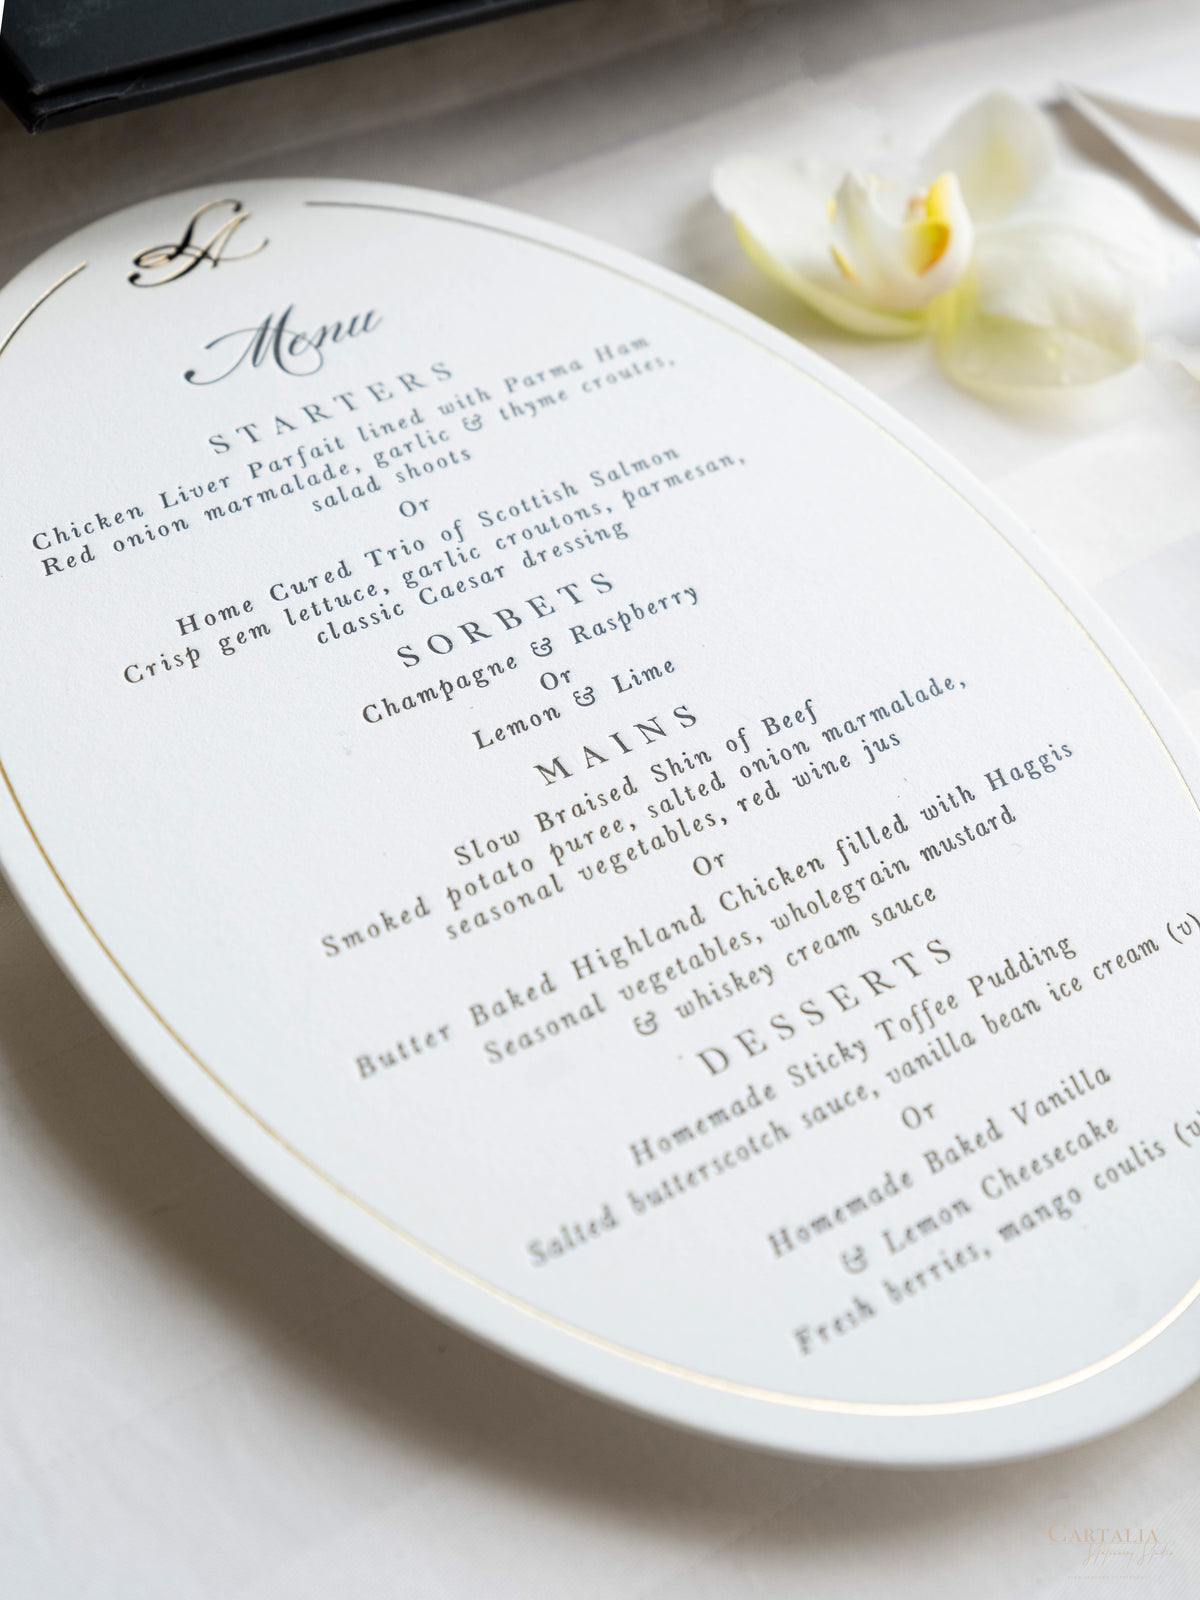 SA
Menu
STARTERS
Chicken Liver Parfait lined with Parma Ham
Red onion marmalade, garlic & thyme croutes,
salad shoots
Or
Home Cured Trio of Scottish Salmon
Crisp gem lettuce, garlic croutons, parmesan,
classic Caesar dressing
SORBETS
Champagne & Raspberry
Or
Lemon & Lime
MAINS
Slow Braised Shin of Beef
Smoked potato puree, salted onion marmalade,
seasonal vegetables, red wine jus
Or
Butter Baked Highland Chicken filled with Haggis
Seasonal vegetables, wholegrain mustard
& whiskey cream sauce
DESSERTS
Homemade Sticky Toffee Pudding
Salted butterscotch sauce, vanilla bean ice cream (v)
Or
Homemade Baked Vanilla
& Lemon Cheesecake
Fresh berries, mango coulis (v
CARTALIA
Stationery Studio